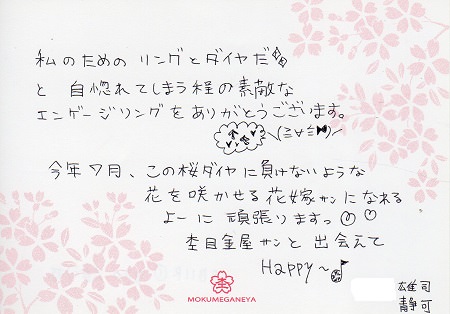 私のための リングとダイヤだ
と 自惚れてしまう程の素敵な
エンゲージリングをありがとうございます。
(≧∀≦)
今年7月、この桜ダイヤに負けないような
花を咲かせる 花嫁サンになれる
よーに 頑張りますっ ♡
杢目金屋サンと 出会えて
Happy〜♪
MOKUMEGANEYA
雄司
静可